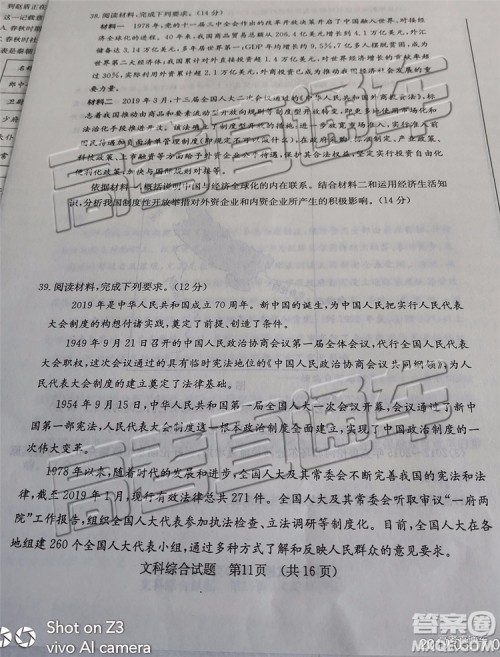 38. 阅读材料,完成下列要求。(14分)
材料一 1978年,党的十一届三中全会作出的改革开放决策开启了中国融入世界、对接
经济全球化的进程。40年来,我国商品贸易总额从206.4亿美元到4.1万亿美元,外汇
储备达3.14万亿美元,多年居世界第一;GDP年均增长约9.5%,7亿多人摆脱贫困,成为
世界第二大经济体;我国累计对外直接投资超1.4万亿美元,对世界经济增长的贡献率超
过30%,实际利用外资累计超2.1万亿美元,外商投资已经成为推动我国经济社会发展的重
要力量。
材料二 2019年3月,十三届全国人大二次会议通过的《中华人民共和国外商投资法》,标
志着我国推动由商品和要素流动型开放向规则等制度型开放转变,即更多地使用市场化和
法治化手段推进开放。该法确立了制度型开放的措施:进一步放宽市场准入,实行准入前
国民待遇加负面清单管理制度
科技政策、上市融资等方面给予外资企业公平待遇,保护其合法权益;坚定实行投资自由化
便利化政策,加快与国际规则对接等。
依据材料一概括说明中国与经济全球化的内在联系。结合材料二和运用经济生活知
识,分析我国制度性开放举措对外资企业和内资企业所产生的积极影响。(14分)
39. 阅读材料,完成下列要求。(12分)
2019年是中华人民共和国成立70周年。新中国的诞生,为中国人民把实行人民代表
大会制度的构想付诸实践,奠定了前提、创造了条件。
1949年9月21日召开的中国人民政治协商会议第一届全体会议,代行全国人民代表
大会职权,这次会议通过的具有临时宪法地位的《中国人民政治协商会议共同纲领》,为人
民代表大会制度的建立奠定了法律基础。
1954年9月15日,中华人民共和国第一届全国人大一次会议开幕,会议通过了新中
国第一部宪法,人民代表大会制度这一根本政治制度全面建立,实现了中国政治制度的一
次伟大变革。
1978年以来,随着时代的发展和进步,全国人大及其常委会不断完善我国的宪法和法
律,截至2019年1月,现行有效法律总共271件。全国人大及其常委会听取审议“一府两
院”工作报告,组织全国人大代表参加执法检查、立法调研等制度化。目前,全国人大在各
地组建260个全国人大代表小组,通过多种方式了解和反映人民群众的意见要求。
文科综合试题 第11页 (共16页)
Shot on Z3
vivo AI camera
答案圈
MXQE.COM